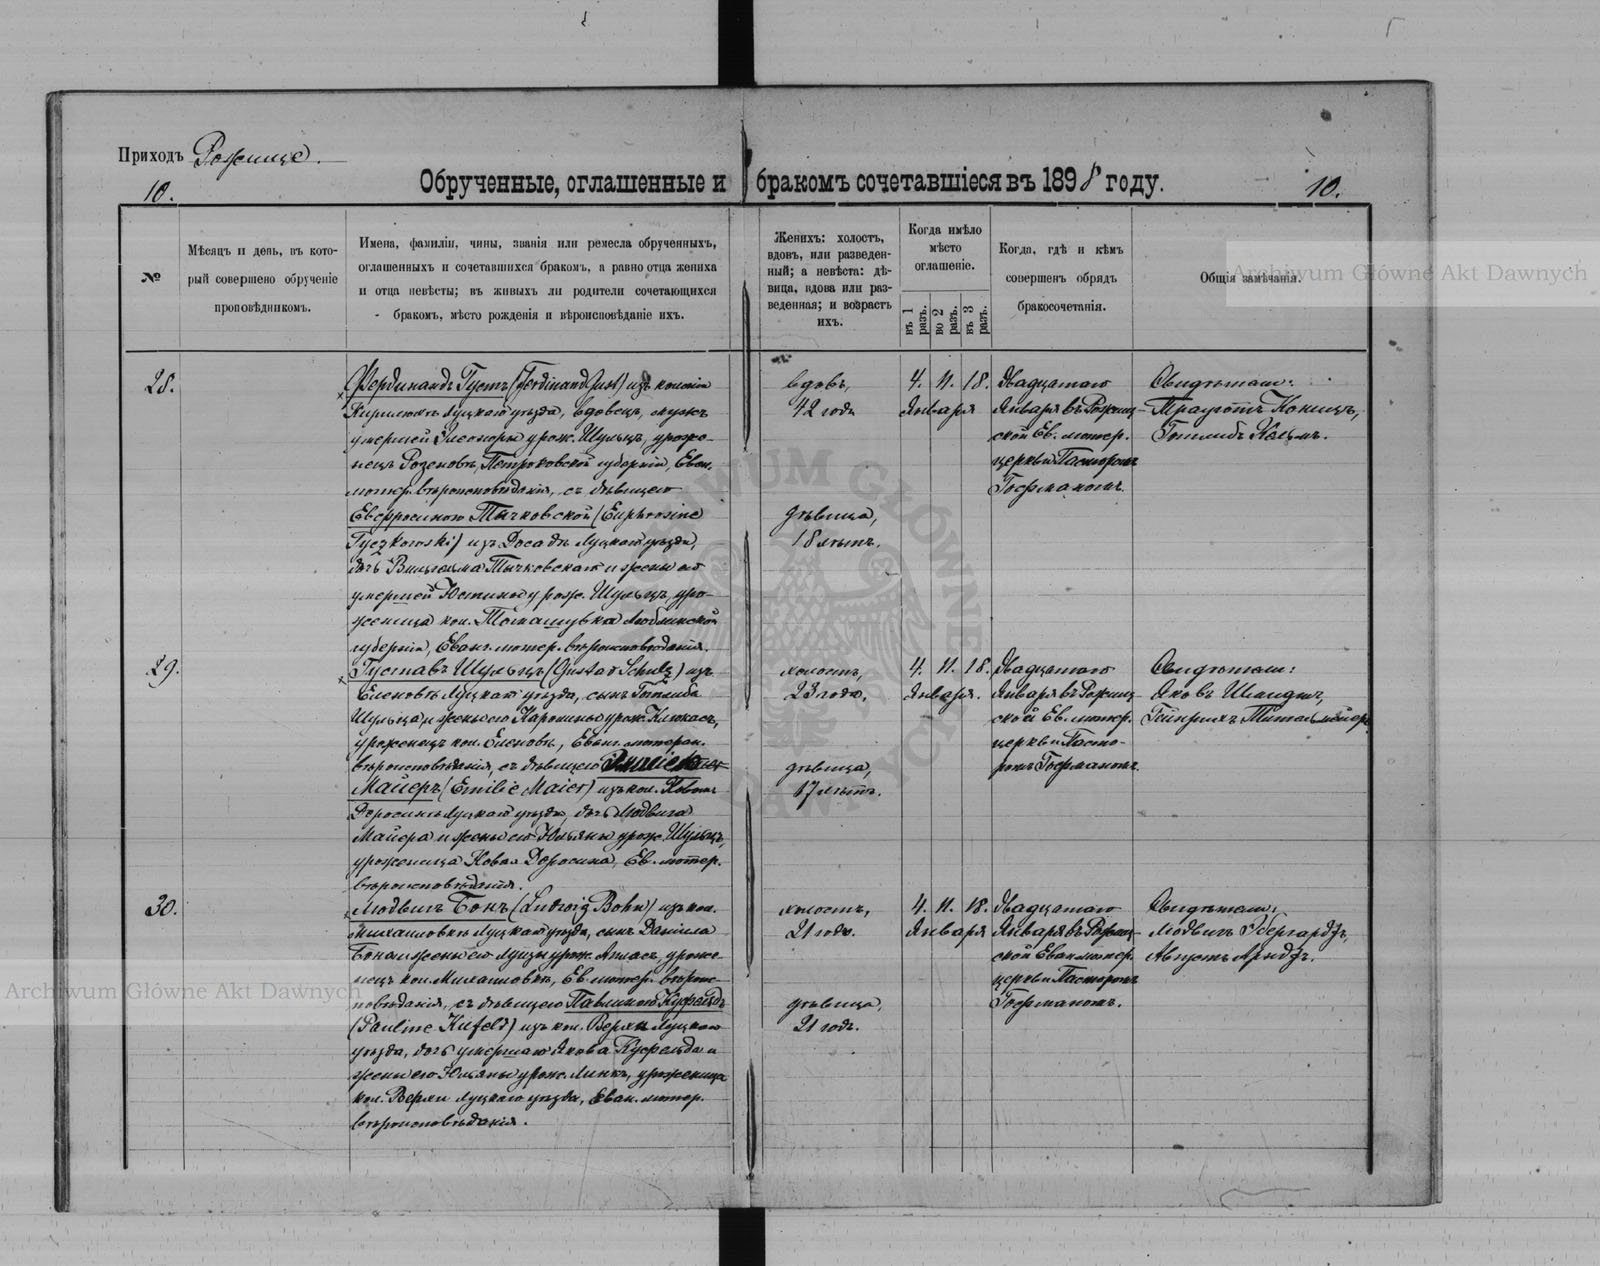 Приходъ Рожище.
10.
Обрученные, оглашенные и бракомъ сочетавшіеся въ 1898 году.
10.
№
Мѣсяцъ и день, въ кото-
рый совершено обрученіе
проповѣдникомъ.
Имена, фамиліи, чины, званія или ремесла обрученныхъ,
оглашенныхъ и сочетавшихся бракомъ, а равно отца жениха
и отца невѣсты; въ живыхъ ли родители сочетающихся
бракомъ, мѣсто рожденія и вѣроисповѣданіе ихъ.
Женихъ: холостъ,
вдовъ, или разведен-
ный; а невѣста: дѣ-
вица, вдова или раз-
веденная; и возрастъ
ихъ.
Когда имѣло
мѣсто
оглашеніе.
въ 1 разъ.
во 2 разъ.
въ 3 разъ.
Когда, гдѣ и кѣмъ
совершенъ обрядъ
бракосочетанія.
Общія замѣчанія.
Archiwum Główne Akt Dawnych
28.
Фердинандъ Густъ (Ferdinand Gust) изъ колоніи
Кирилювкъ Луцкаго уѣзда, вдовецъ, мужъ
умершей Элеоноры урож. Шульцъ, уроже-
нецъ Розеновъ, Петроковской губерніи, Еван.
лютер. вѣроисповѣданія, съ дѣвицею
Евфросиною Тычковской (Euphrosine
Tyczkowski) изъ Досадъ Луцкаго уѣзда,
дочь Вильгельма Тычковскаго и жены его
умершей Юстины урож. Шульцъ, уро-
женица кол. Томашувка Люблинской
губерніи, Еван. лютер. вѣроисповѣданія.
вдовъ,
42 года
дѣвица,
18 лѣтъ.
4. 11. 18.
Января
Двадцатаго
Января въ Рожищ-
ской Ев. лютер.
церкви Пасторомъ
Госфманомъ.
Свидѣтели:
Трауготтъ Коницъ,
Готлибъ
29.
Густавъ Шульцъ (Gustav Schulz) изъ
Еленовкъ Луцкаго уѣзда, сынъ Готлиба
Шульца и жены его Каролины урож.
уроженецъ кол. Еленовкъ, Еван. лютеран.
вѣроисповѣданія, съ дѣвицею
Майеръ (Emilie Maier) изъ кол. Новый
Доросинъ Луцкаго уѣзда, дочь Людвига
Майера и жены его Юльяны урож. Шульцъ,
уроженица Новая Доросина, Ев. лютер.
вѣроисповѣданія.
холостъ,
23 года,
дѣвица,
17 лѣтъ.
4. 11. 18.
Января.
Двадцатаго
Января въ Рожищ-
ской Ев. лютер.
церкви Пасто-
ромъ Госфманомъ.
Свидѣтели:
Яковъ Шмидтъ,
Гейнрихъ
30.
Людвигъ Бонъ (Ludwig Bohn) изъ кол.
Михаловкъ Луцкаго уѣзда, сынъ Даніила
Бона и жены его Луизы урож. Атласъ, уроже-
нецъ кол. Михаловкъ, Ев. лютер. вѣроис-
повѣданія, съ дѣвицею Павлиною Куфельдъ
(Pauline Kufeld) изъ кол. Верхи Луцкаго
уѣзда, дочь умершаго Якова Куфельда и
жены его Юльяны урож. Линкъ, уроженица
кол. Верхи Луцкаго уѣзда, Еван. лютер.
вѣроисповѣданія.
холостъ,
21 года.
дѣвица,
21 годъ.
4. 11. 18.
Января
Двадцатаго
Января въ Рожищ-
ской Еван. лютер.
церкви Пасторомъ
Госфманомъ.
Свидѣтели:
Людвигъ
Августъ Арндтъ.
Archiwum Główne Akt Dawnych
ARCHIWUM GŁÓWNE